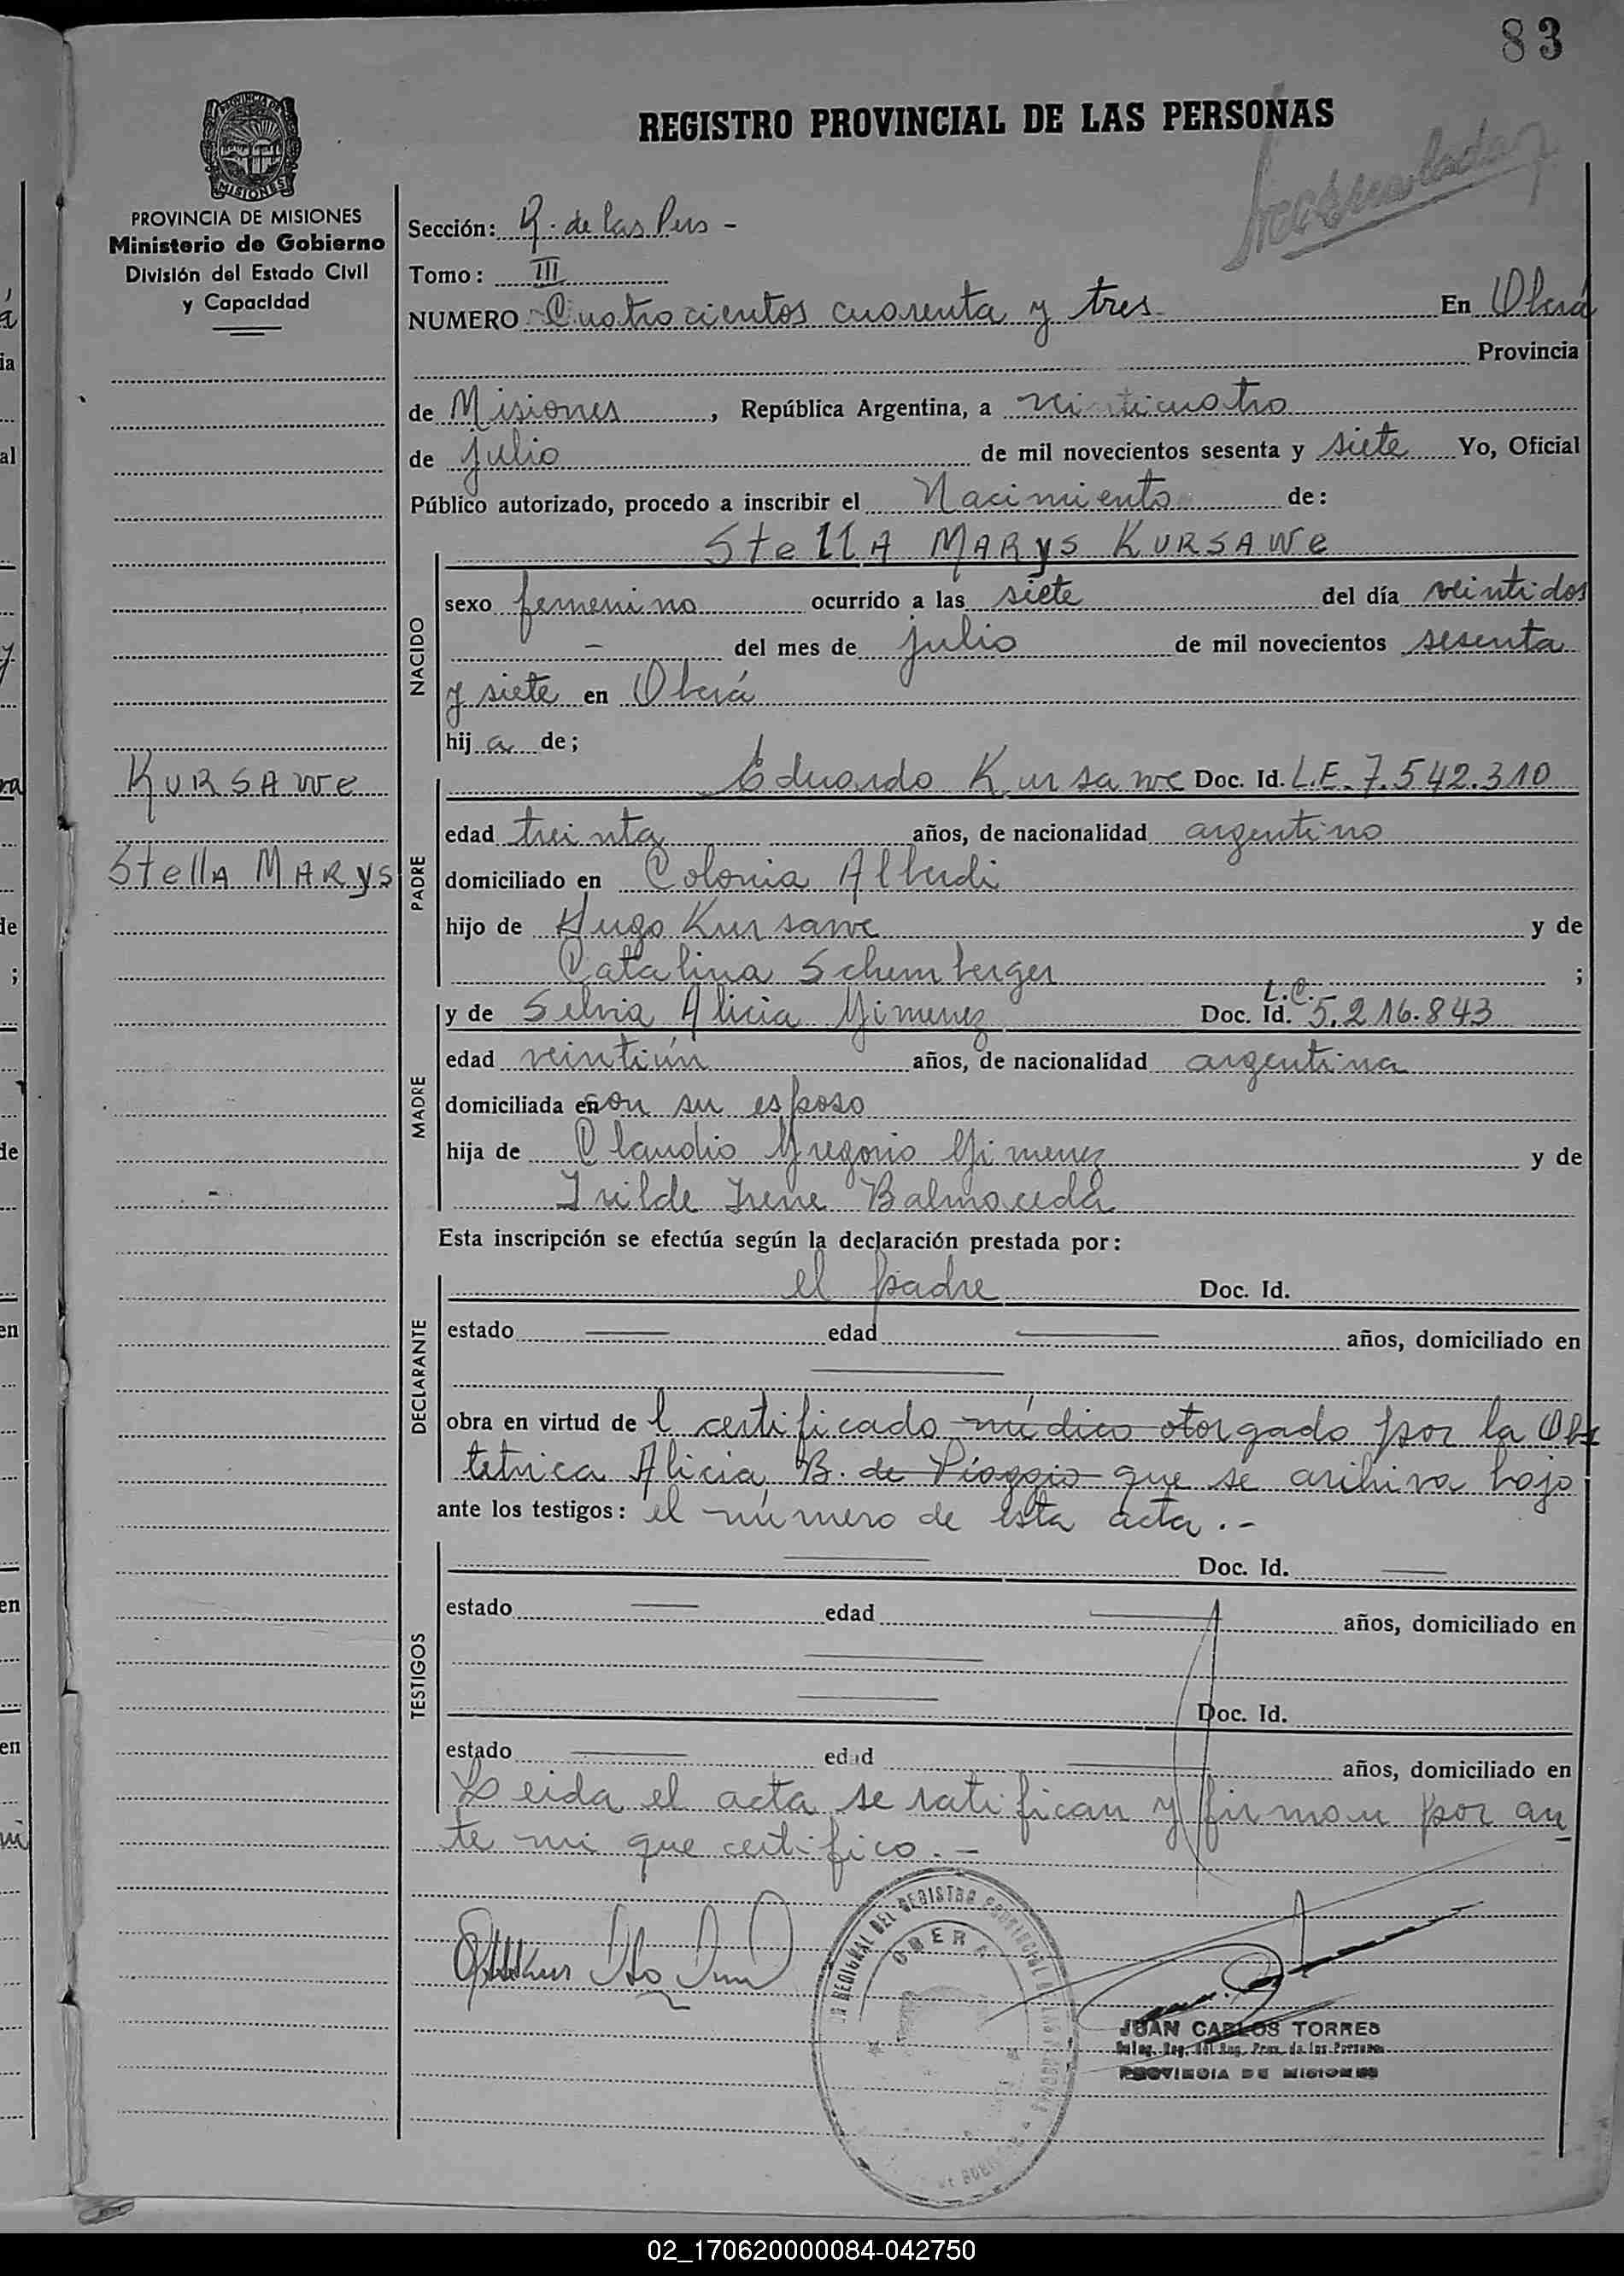 83
REGISTRO PROVINCIAL DE LAS PERSONAS
PROVINCIA DE MISIONES
MISIONES
PROVINCIA DE MISIONES
Ministerio de Gobierno
División del Estado Civil
y Capacidad
Sección: R. de las Pers -
Tomo: III
NUMERO Cuatrocientos cuarenta y tres En Oberá
Provincia
de Misiones, República Argentina, a veinticuatro
de julio de mil novecientos sesenta y siete Yo, Oficial
Público autorizado, procedo a inscribir el Nacimiento de:
Stella MARYS KURSAWE
NACIDO
sexo femenino ocurrido a las siete del día veintidos
- del mes de julio de mil novecientos sesenta
y siete en Oberá
hij a de;
KURSAWE
Stella MARYS
PADRE
Eduardo Kursawe Doc. Id. L.E. 7.542.310
edad treinta años, de nacionalidad argentino
domiciliado en Colonia Alberdi
hijo de Hugo Kursawe y de
Catalina Schumberger ;
MADRE
y de Silvia Alicia Gimenez Doc. Id. L.C. 5.216.843
edad veintiún años, de nacionalidad argentina
domiciliada en con su esposo
hija de Claudio Gregorio Gimenez y de
Irilde Irene Balmaceda
Esta inscripción se efectúa según la declaración prestada por:
DECLARANTE
el padre Doc. Id.
estado edad años, domiciliado en
obra en virtud de l certificado médico otorgado por la Obs
tetrica Alicia B. de Pioggio que se archiva bajo
ante los testigos: el número de esta acta.-
TESTIGOS
Doc. Id.
estado edad años, domiciliado en
Doc. Id.
estado edad años, domiciliado en
Leida el acta se ratifican y firman por an
te mi que certifico.-
OBERA
JUAN CARLOS TORRES
Deleg. Reg. del Reg. Prov. de las Personas
PROVINCIA DE MISIONES
02_170620000084-042750